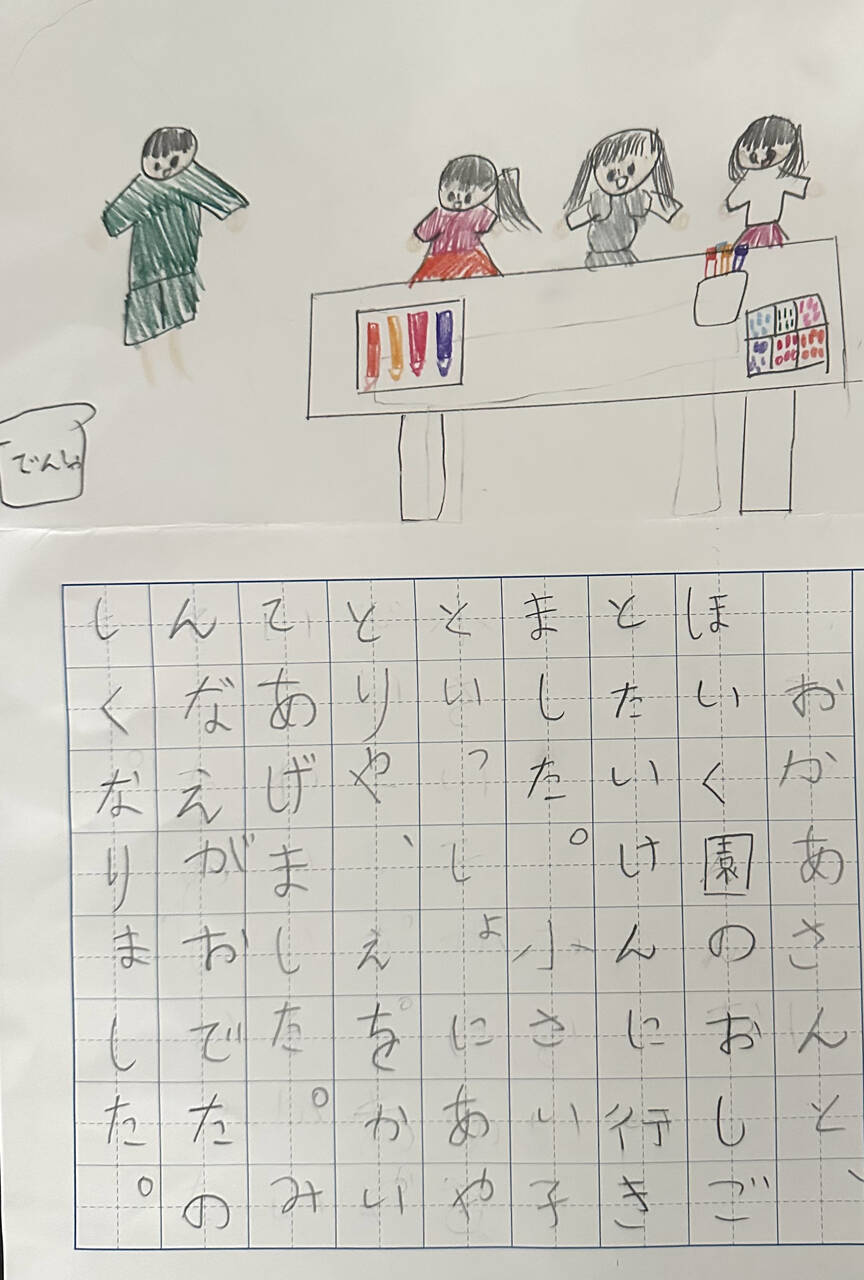 でんしゃ
おかあさんと、
ほいく園のおしご
とたいけんに行き
ました。小さい子
といっしょにあや
とりや、えをかい
てあげました。み
んなえがおでたの
しくなりました。